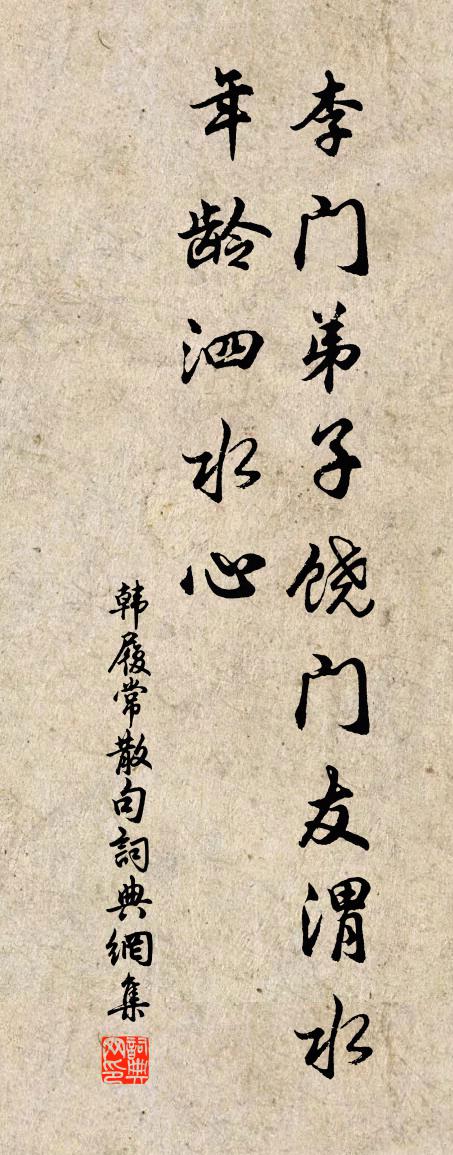 李门弟子饶门友渭水
年龄泗水心
韩履常散句詞典網集
詞典
网印